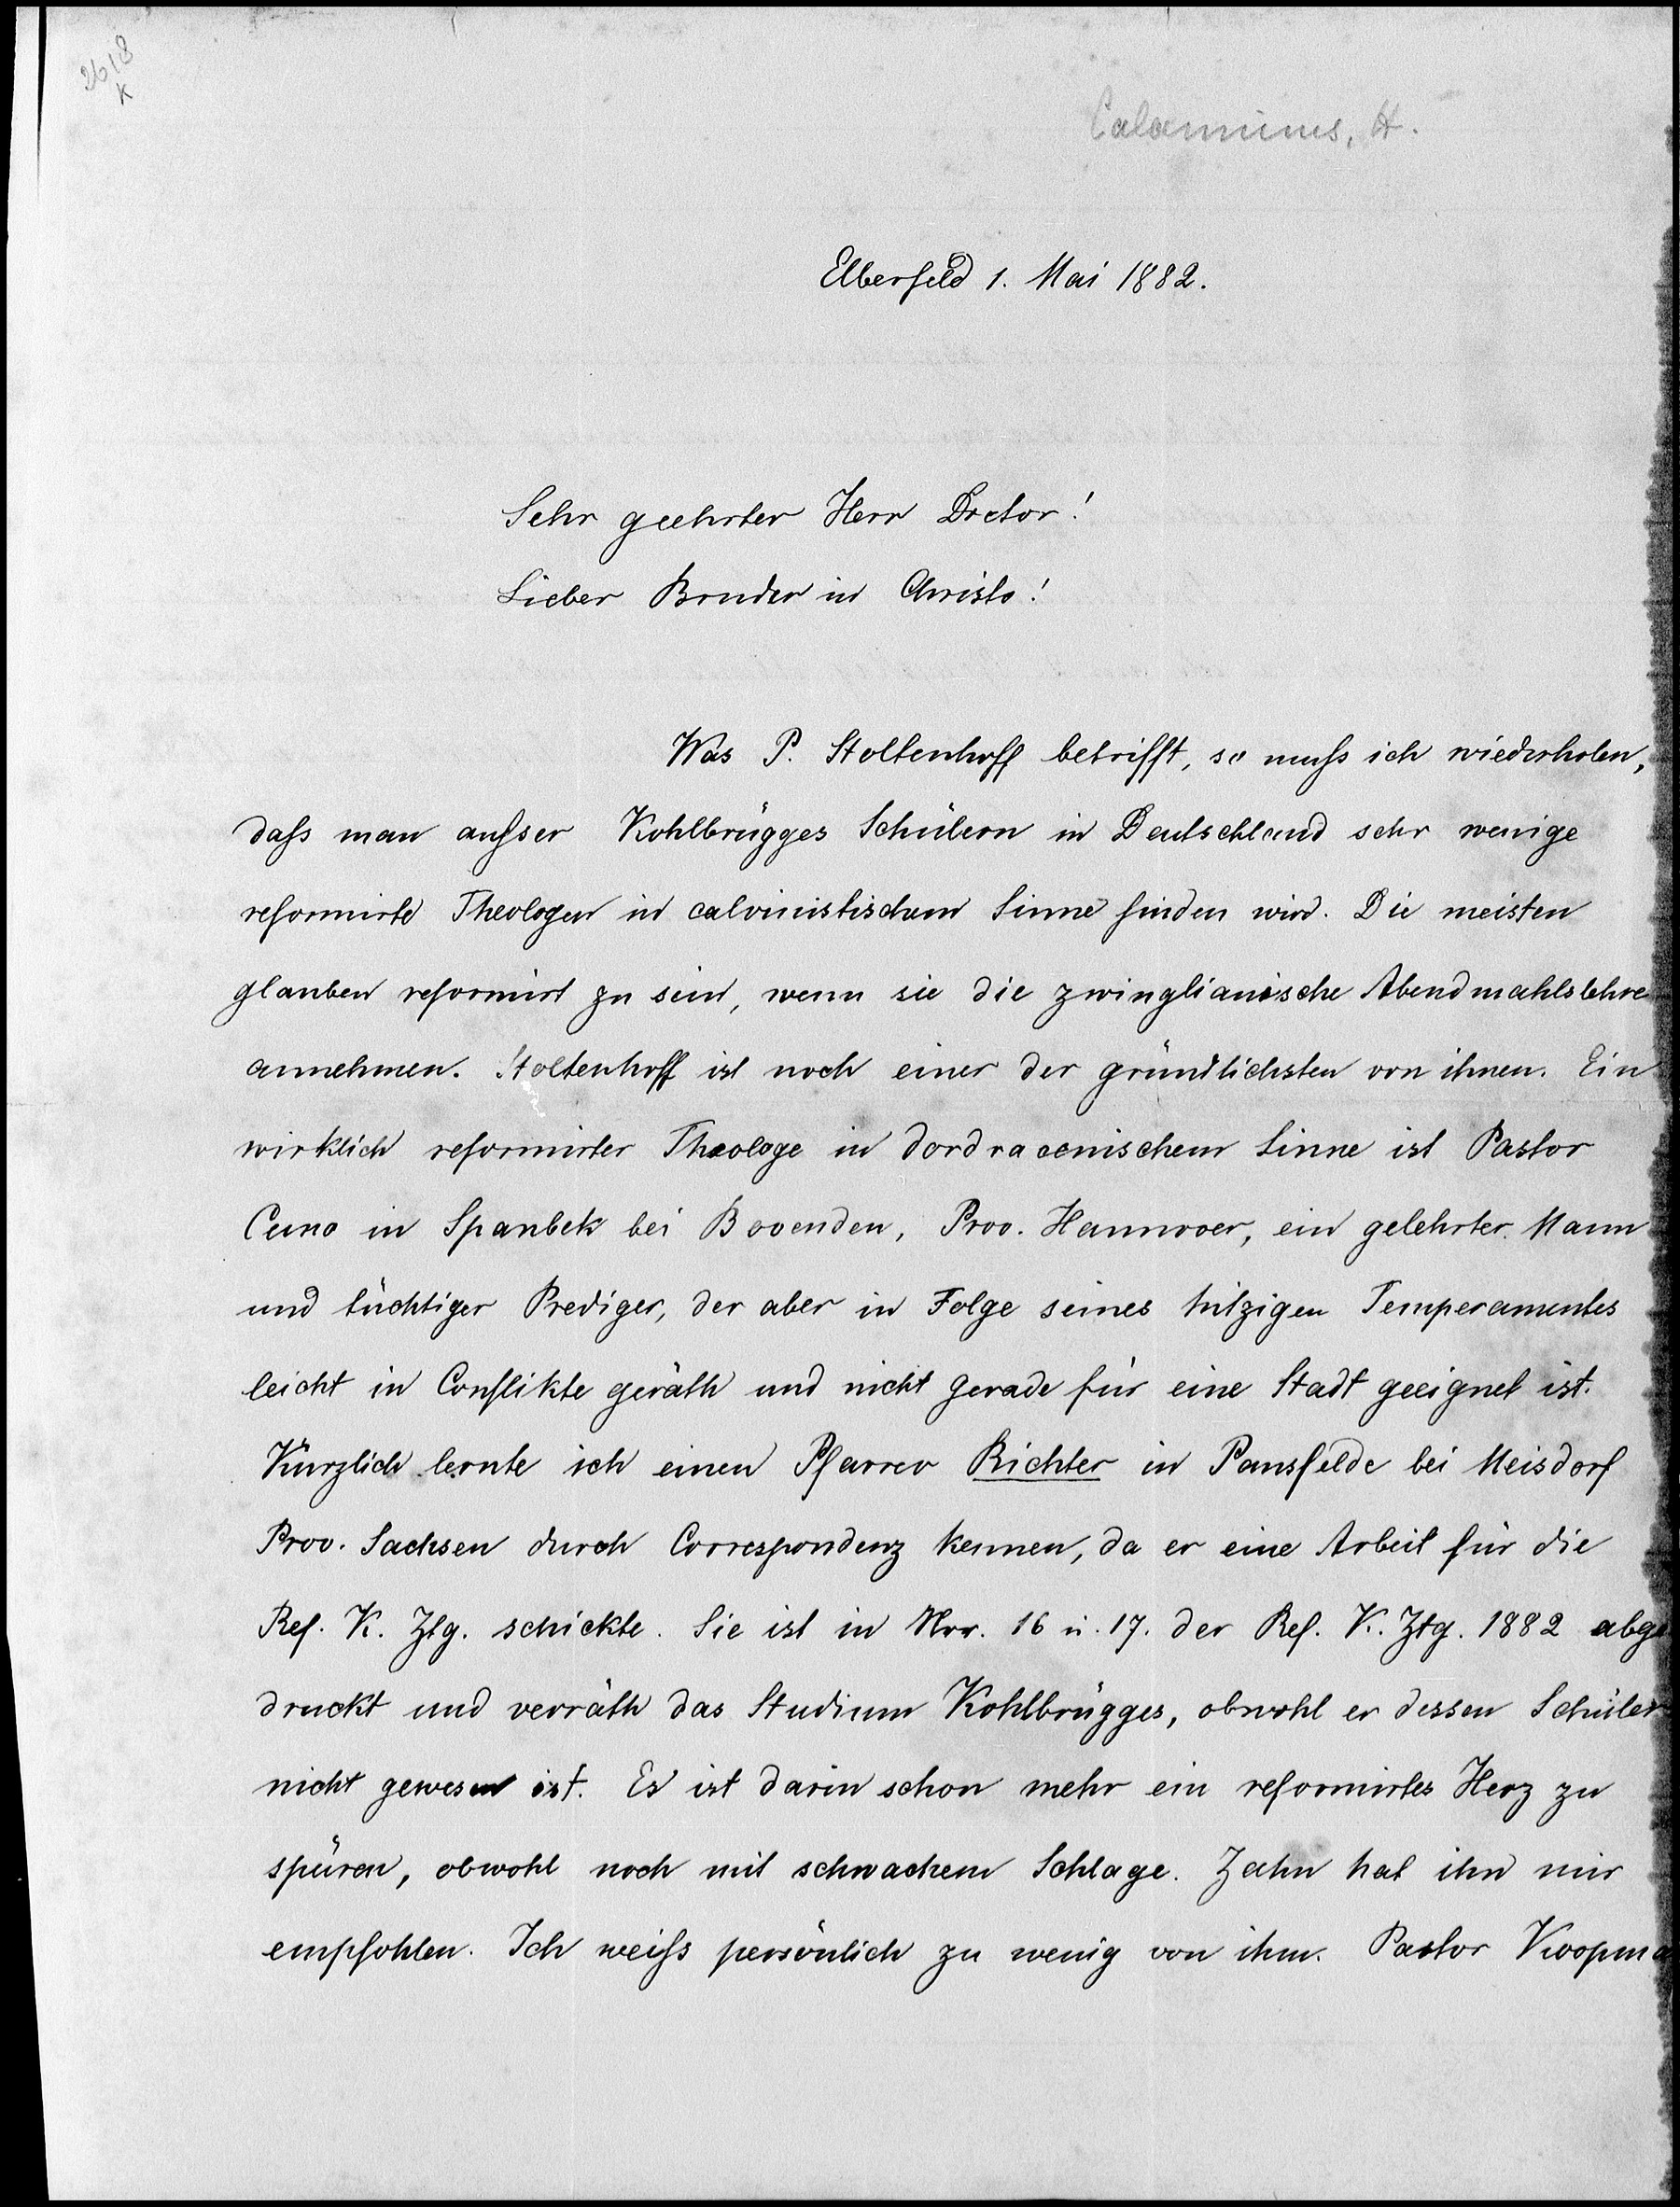 2618
K
Calaminus, H.
Elberfeld 1. Mai 1882.
Sehr geehrter Herr Doctor!
Lieber Bruder in Christo!
Was P. Stoltenhoff betrifft, so muß ich wiederholen,
daß man außer Kohlbrügges Schülern in Deutschland sehr wenige
reformirte Theologen in calvinistischem Sinne finden wird. Die meisten
glauben reformirt zu sein, wenn sie die zwinglianische Abendmahlslehre
annehmen. Stoltenhoff ist noch einer der gründlichsten von ihnen. Ein
wirklich reformirter Theologe in dordracenischem Sinne ist Pastor
Cuno in Spanbek bei Bovenden, Prov. Hannover, ein gelehrter Mann
und tüchtiger Prediger, der aber in Folge seines hitzigen Temperamentes
leicht in Conflikte geräth und nicht gerade für eine Stadt geeignet ist.
Kürzlich lernte ich einen Pfarrer Richter in Pansfelde bei Meisdorf
Prov. Sachsen durch Correspondenz kennen, da er eine Arbeit für die
Ref. K. Ztg. schickte. Sie ist in Nrr. 16 u. 17. der Ref. K. Ztg. 1882 abge
druckt und verräth das Studium Kohlbrügges, obwohl er dessen Schüler
nicht gewesen ist. Es ist darin schon mehr ein reformirtes Herz zu
spüren, obwohl noch mit schwachem Schlage. Zahn hat ihn mir
empfohlen. Ich weiß persönlich zu wenig von ihm. Pastor Koopma